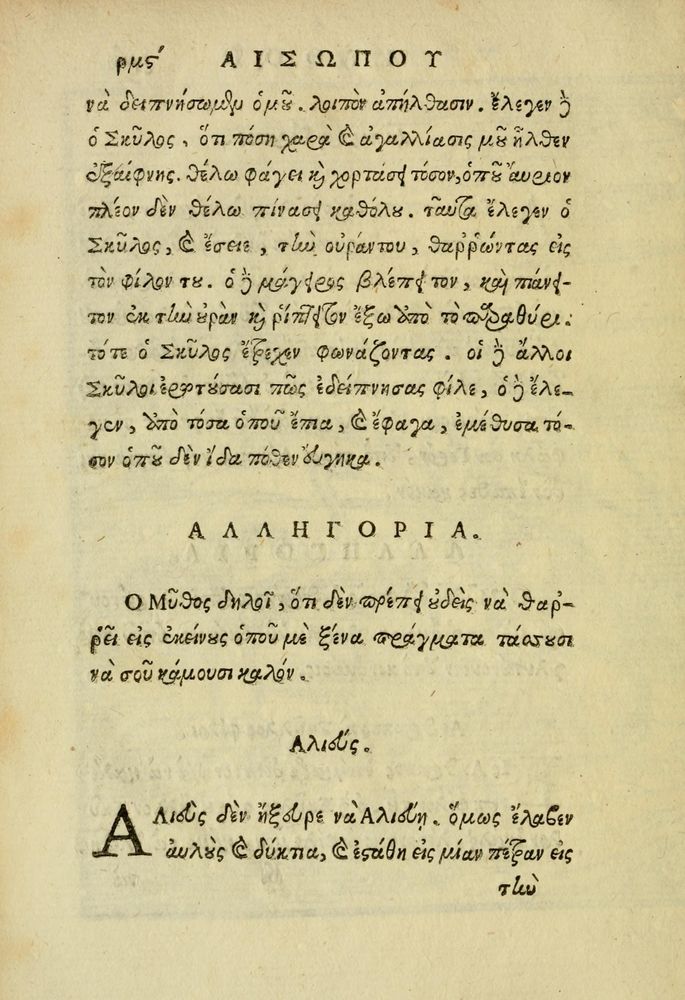 ρμϛʹ ΑΙΣΩΠΟΥ
νὰ δειπνήσωμεν ὁμοῦ. λοιπὸν ἀπήλθασιν. ἔλεγεν δὲ
ὁ Σκῦλος, ὅτι πόση χαρὰ καὶ ἀγαλλίασις μοῦ ἦλθεν
ἐξαίφνης. θέλω φάγει καὶ χορτάσει τόσον, ὁποῦ ἄυριον
πλέον δὲν θέλω πίνασει καθόλου. ταῦτα ἔλεγεν ὁ
Σκῦλος, καὶ ἔσειε, τὴν οὐράντου, θαῤῥώντας εἰς
τὸν φίλον του. ὁ δὲ μάγειρος βλέπει τον, καὶ πιάνει-
τον ἐκ τὴν οὐρὰν καὶ ῥίπτει τον ἔξω ἀπὸ τὸ παραθύρι.
τότε ὁ Σκῦλος ἔτρεχεν φωνάζοντας. οἱ δὲ ἄλλοι
Σκῦλοι ἐρωτούσασι πῶς ἐδείπνησας φίλε, ὁ δὲ ἔλε-
γεν, ἀπὸ τόσα ὁποῦ ἔπια, καὶ ἔφαγα, ἐμέθυσα τό-
σον ὁποῦ δὲν ἶδα πόθεν ἐυγηκα.
ΑΛΛΗΓΟΡΙΑ.
Ὁ Μῦθος δηλοῖ, ὅτι δὲν πρέπει οὐδεὶς νὰ θαρ-
ρεῖ εἰς ἐκείνους ὁποῦ μὲ ξένα πράγματα τάσσουσι
νὰ σοῦ κάμουσι καλόν.
Αλιεύς.
ΑΛιεὺς δὲν ἤξευρε νὰ Αλιεύῃ. ὅμως ἔλαβεν
ἀυλοὺς καὶ δύκτια, καὶ ἐστάθη εἰς μίαν πέτραν εἰς
τὴν